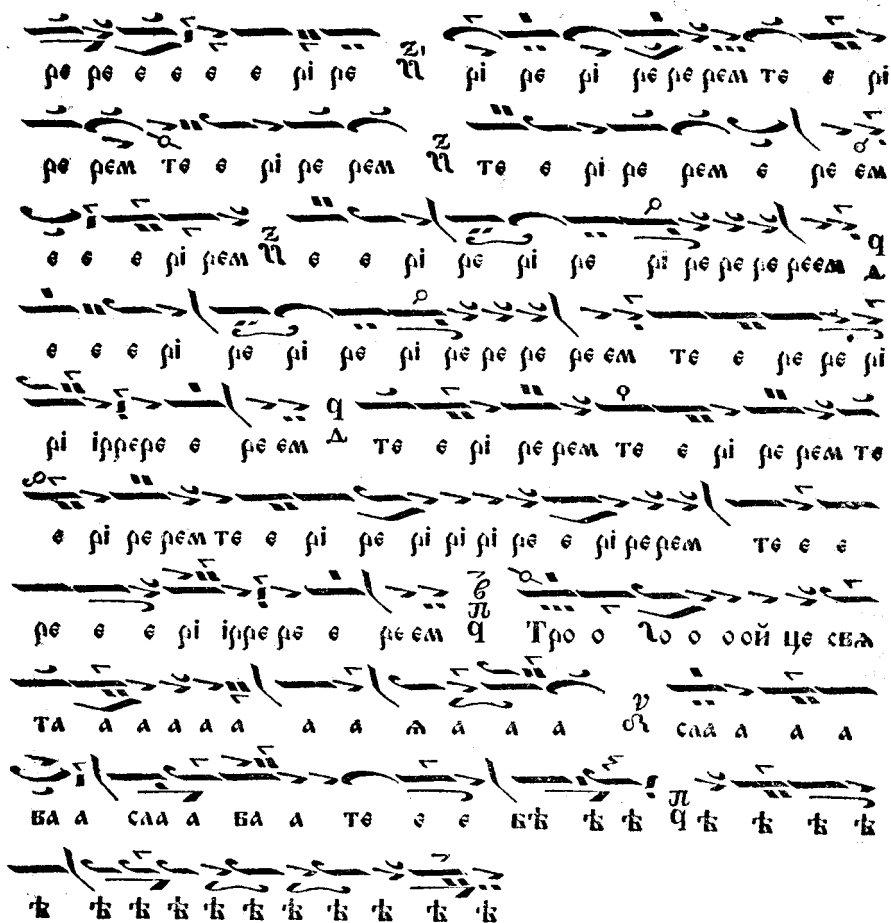 ре ре е е е е рі ре рі ре рі ре ре рем те е рі
ре рем те е рі ре рем те е рі ре рем е ре ем
е е е рі рем е е рі ре рі ре рі ре ре ре ре ем
е е е рі ре рі ре рі ре ре ре ре ем те е ре ре рі
рі іррере е ре ем те е рі ре рем те е рі ре рем те
е рі ре рем те е рі ре рі рі рі ре е рі ре рем те е е
ре е е рі ірре ре е ре ем Тро о о о ой це свѧ
та а а а а а а а ѧ а а а слаа а а а
ва а слаа а ва а те е е бѣ ѣ ѣ ѣ ѣ ѣ ѣ
ѣ ѣ ѣ ѣ ѣ ѣ ѣ ѣ ѣ ѣ